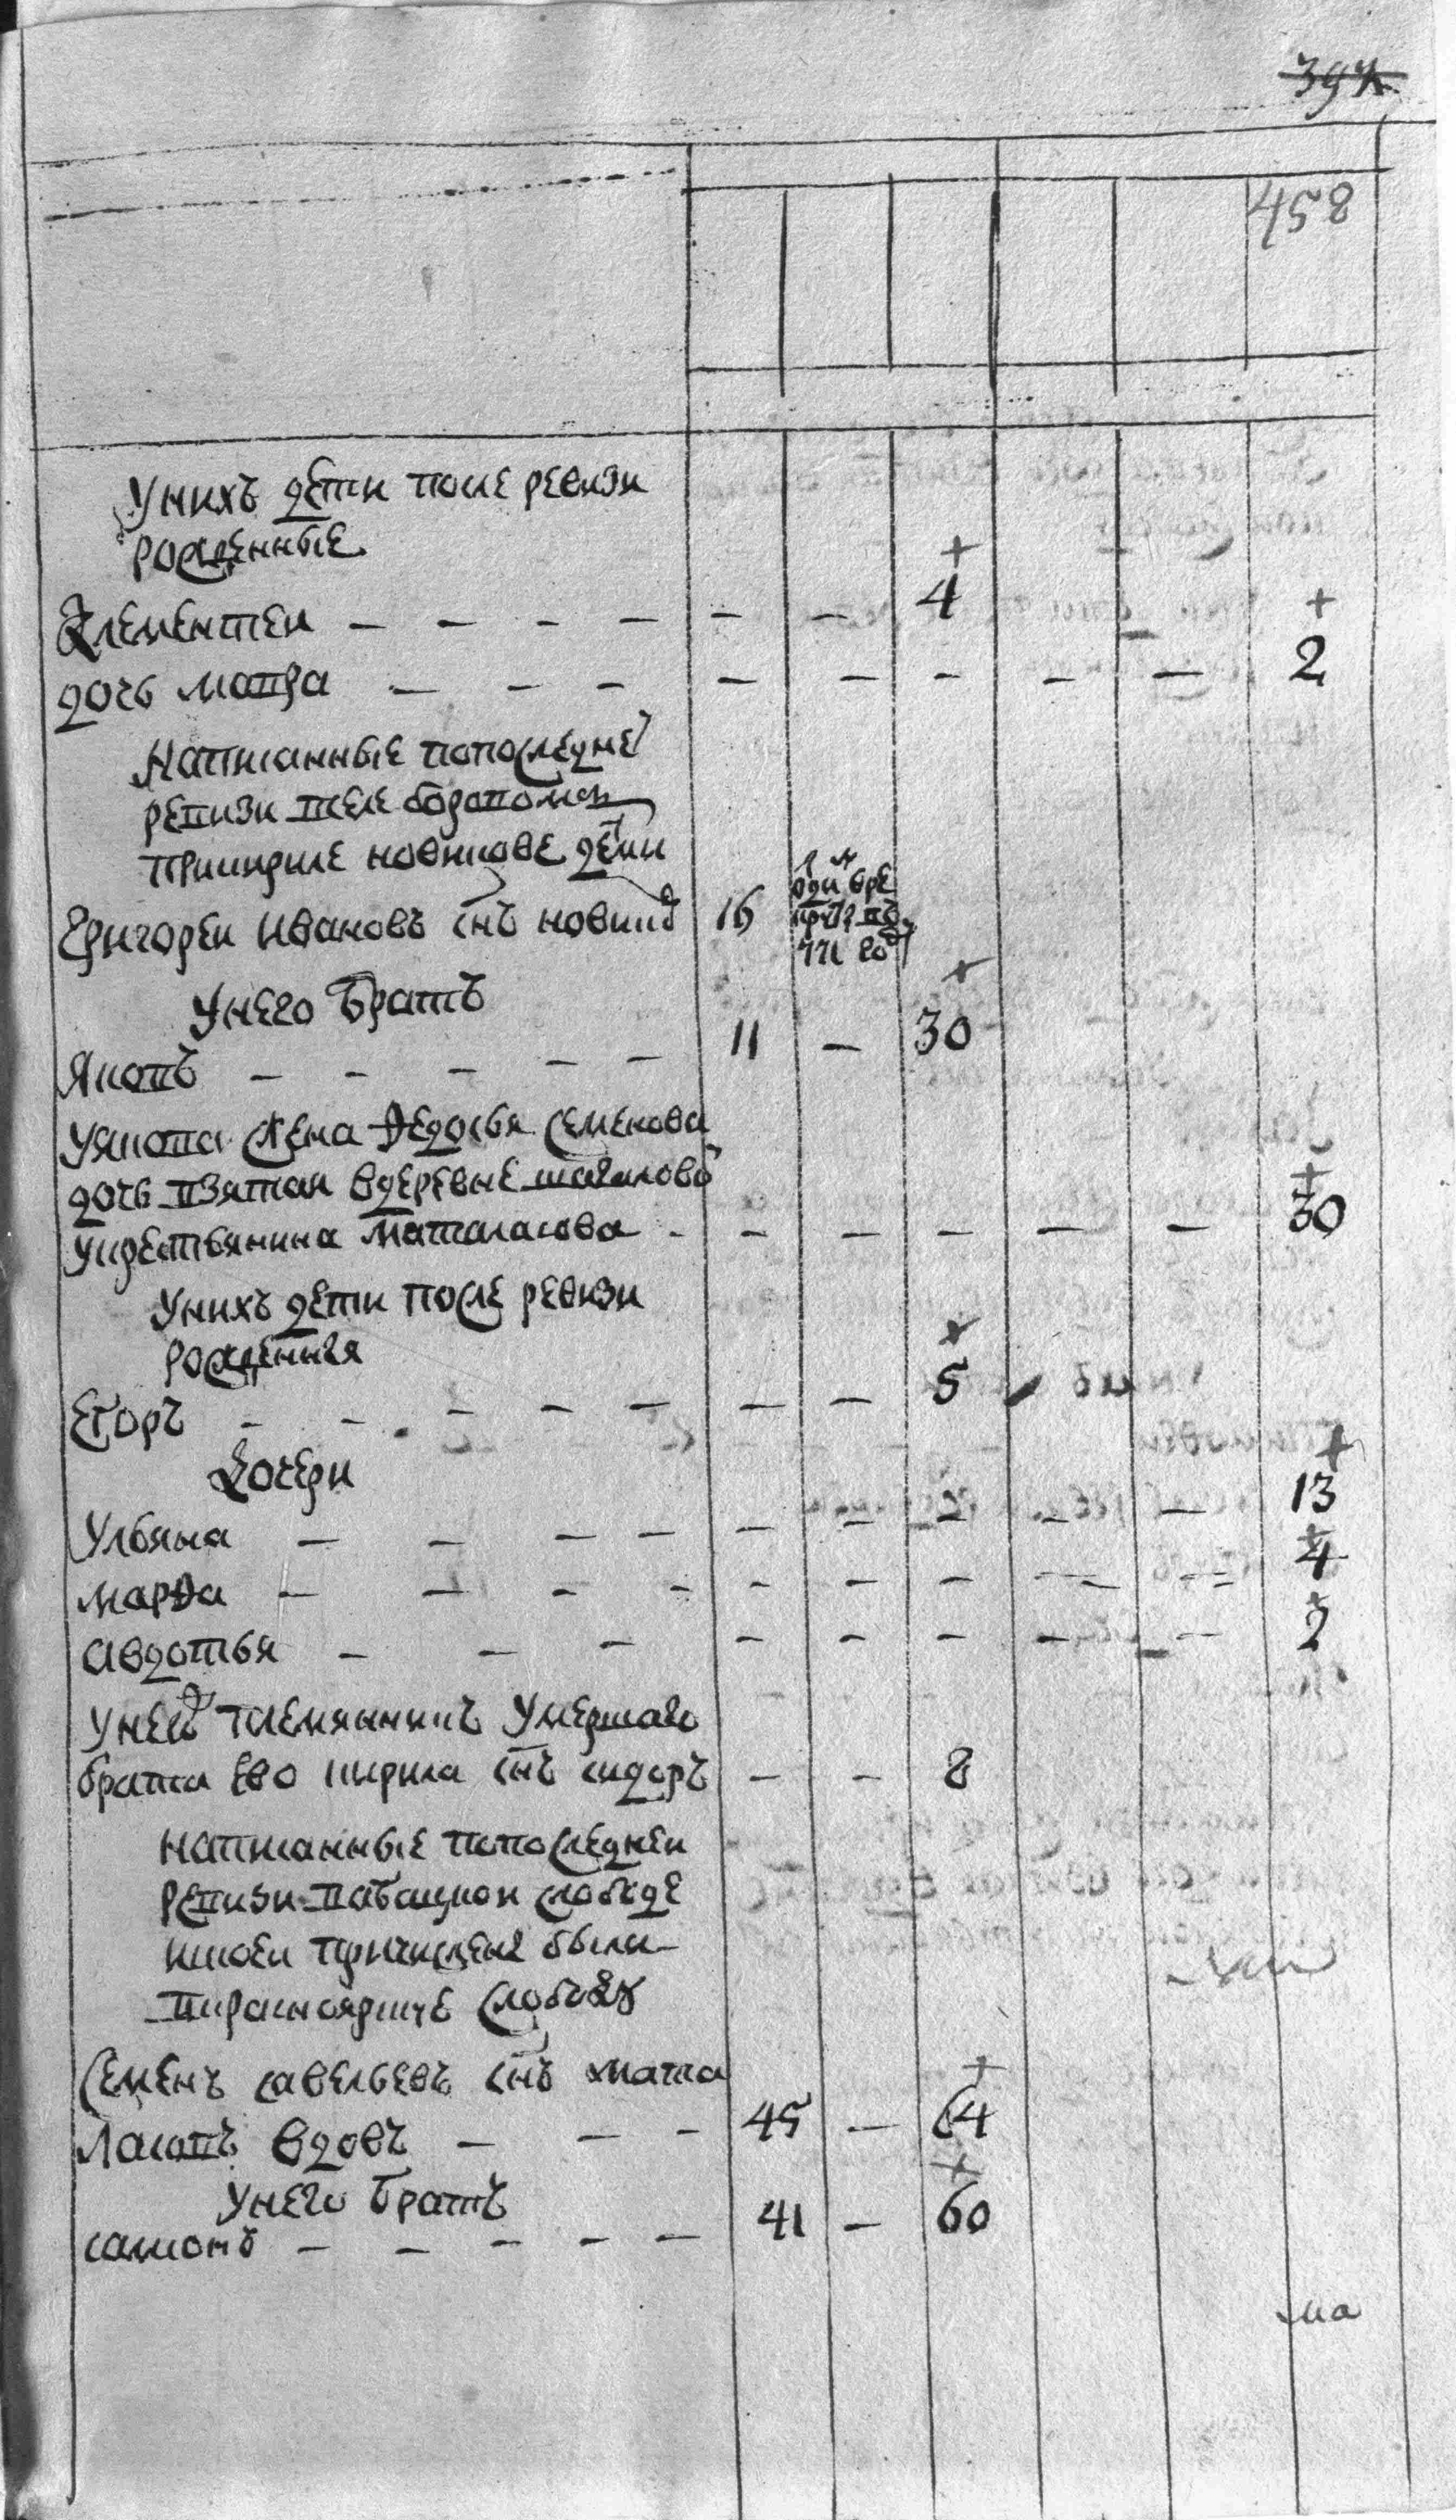 397
458
У нихъ дети после ревизи
рожденные
+ +
Клементеи — — — — — — 4
дочь мавра — — — — — — — — 2
Написанные попоследнеи
ревизи вселе
прикириле новикове дети
Григореи Ивановъ снъ новиковъ 16
У него братъ +
Яковъ — — — — — 11 — 30
У якова жена Федосья семенова
дочь взятая вдеревне
укрестьянина — — — — — — 30
У нихъ дети после ревизи
рожденныя +
Егоръ — — — — — — — 5
Дочери +
Ульяна — — — — — — — — — 13
марфа — — — — — — — — — 4
авдотья — — — — — — — — 2
У него племянникъ Умершаго
брата ево кирила снъ сидоръ — — 8
написанные попоследнеи
ревизи слободе
икоеи причислены были
вкраснояршче слободу
Семенъ савельевъ снъ +
вдовъ — — — 45 — 64
У него братъ +
самсонъ — — — — — 41 — 60
ма